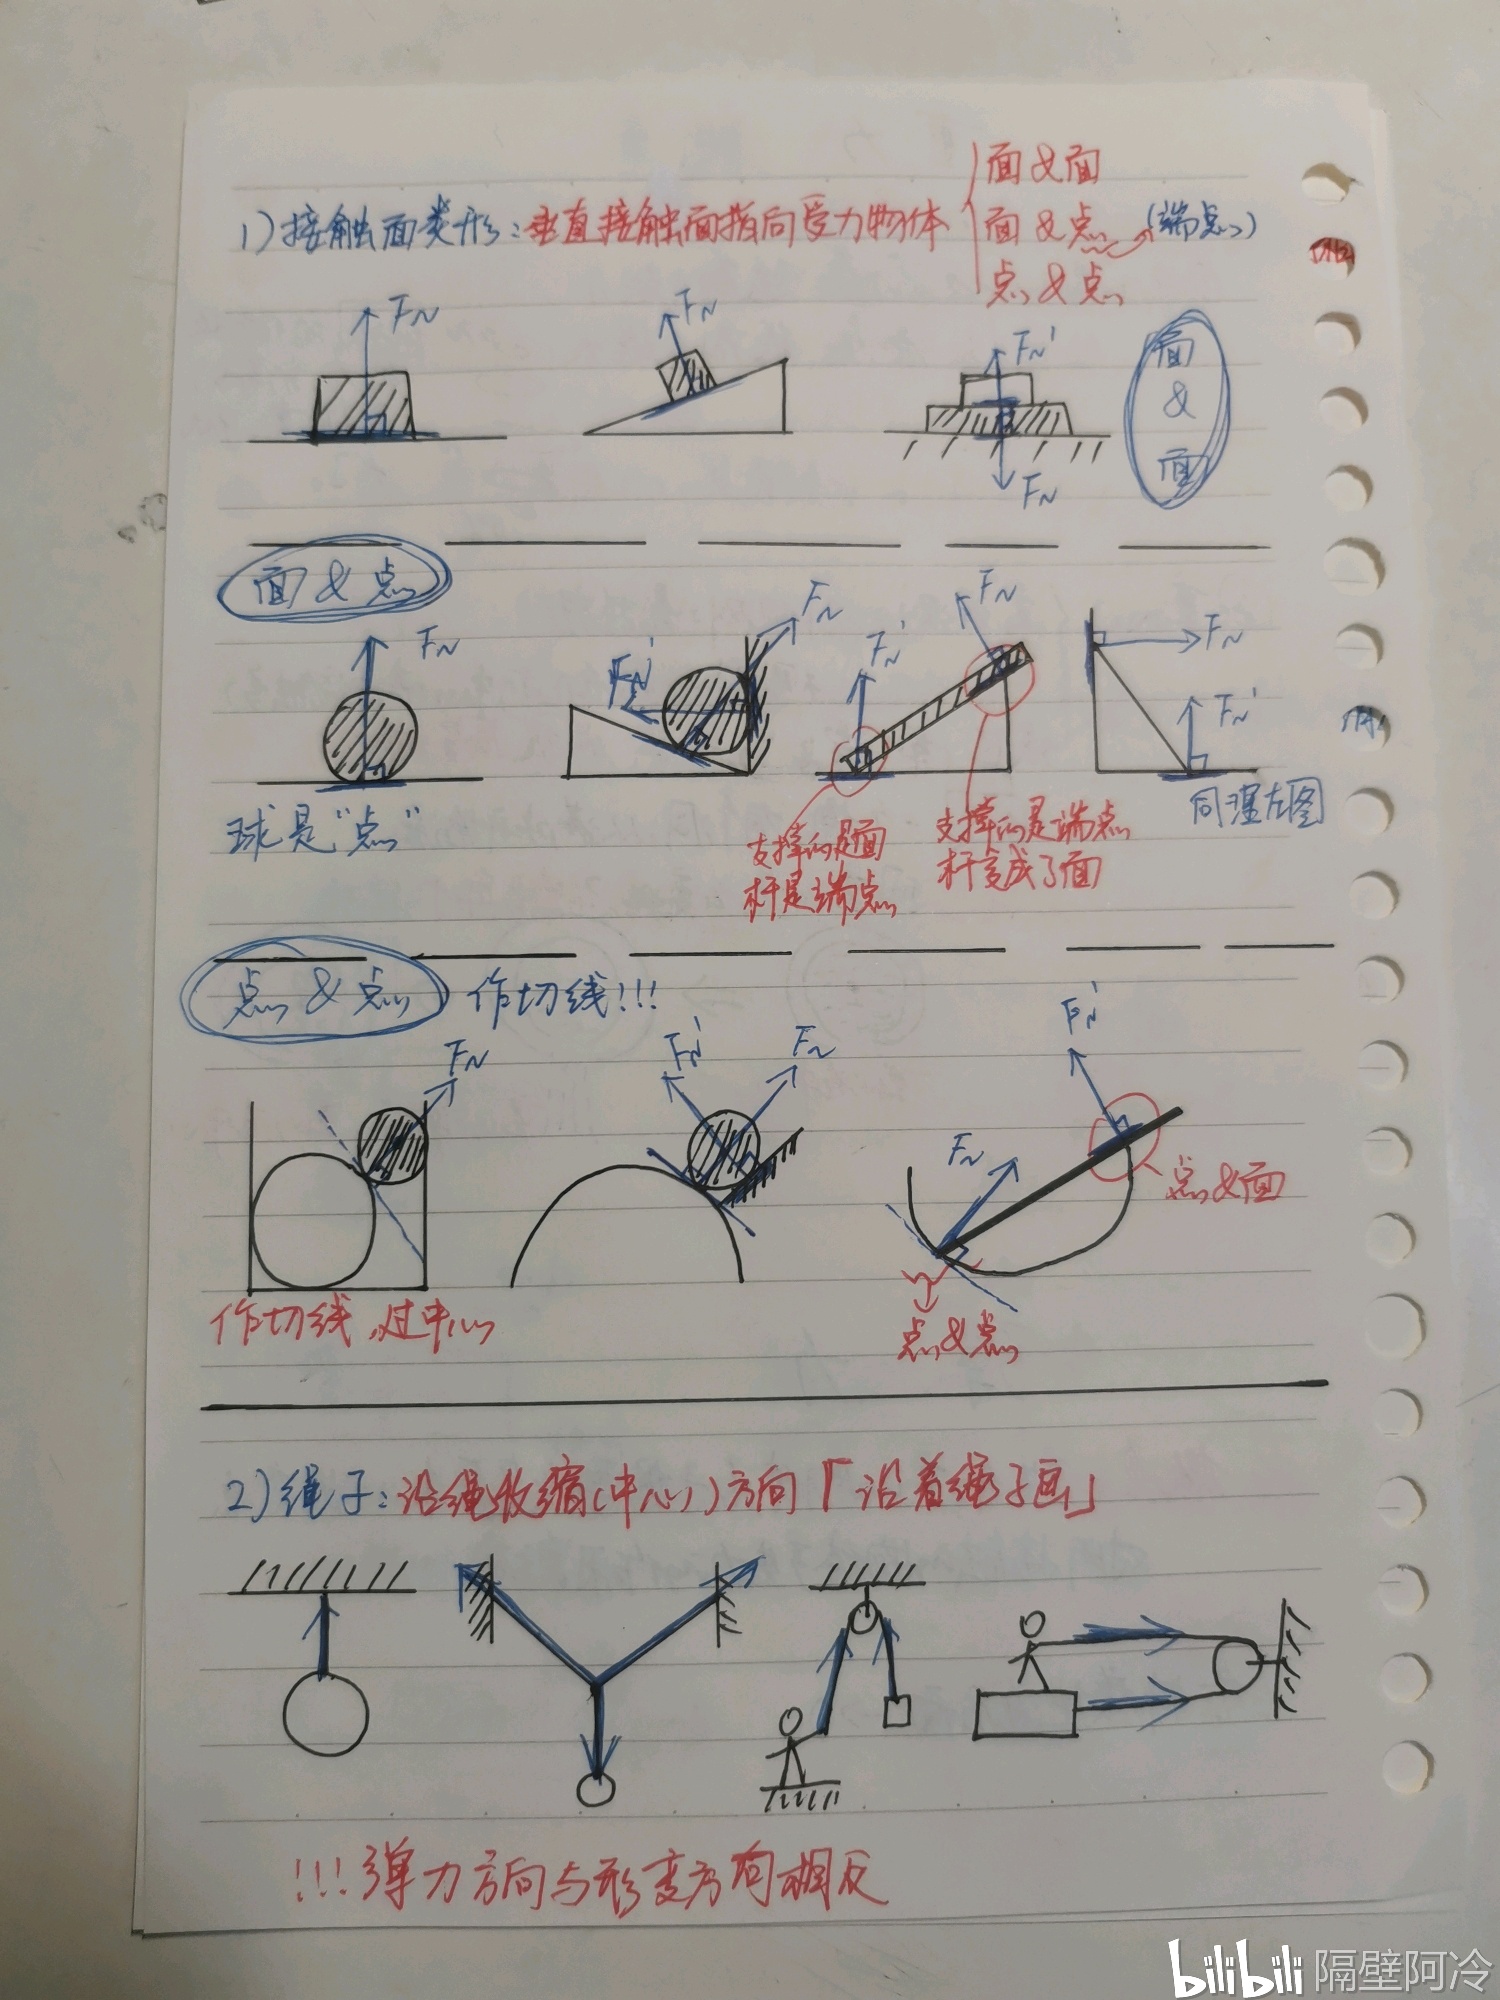 面&面
1)接触面类形:垂直接触面指向受力物体 面&点(端点)
点&点
FN FN FN' 面
&
面
FN
面&点
FN FN' FN FN' FN FN FN'
球是"点" 同理左图
支撑的是面 支撑的是端点
杆是端点 杆变成了面
点&点 作切线!!!
FN FN' FN FN' FN
点&面
作切线,过中心 点&点
2)绳子:沿绳收缩(中心)方向「沿着绳子画」
!!!弹力方向与形变方向相反
bilibili 隔壁阿冷